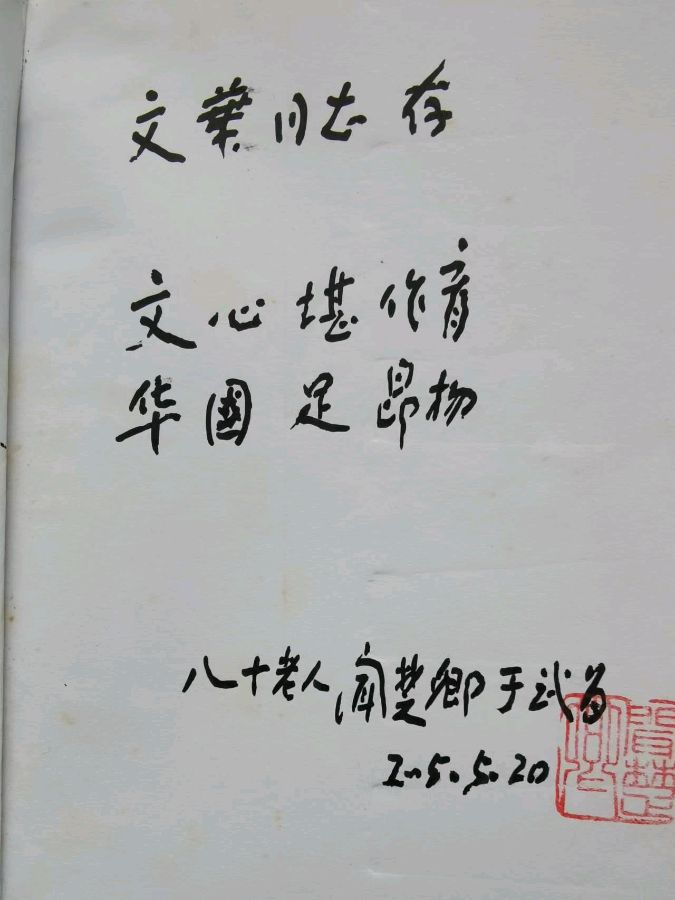 文華同志 存
文心堪作育
华國足昂扬
八十老人闻楚卿于武昌
2005.5.20